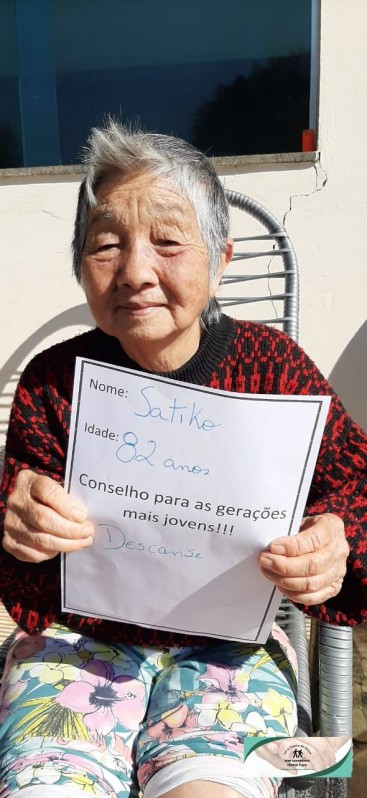 Nome: Satiko
Idade: 82 anos
Conselho para as gerações
mais jovens!!!
Descanse
Home Care